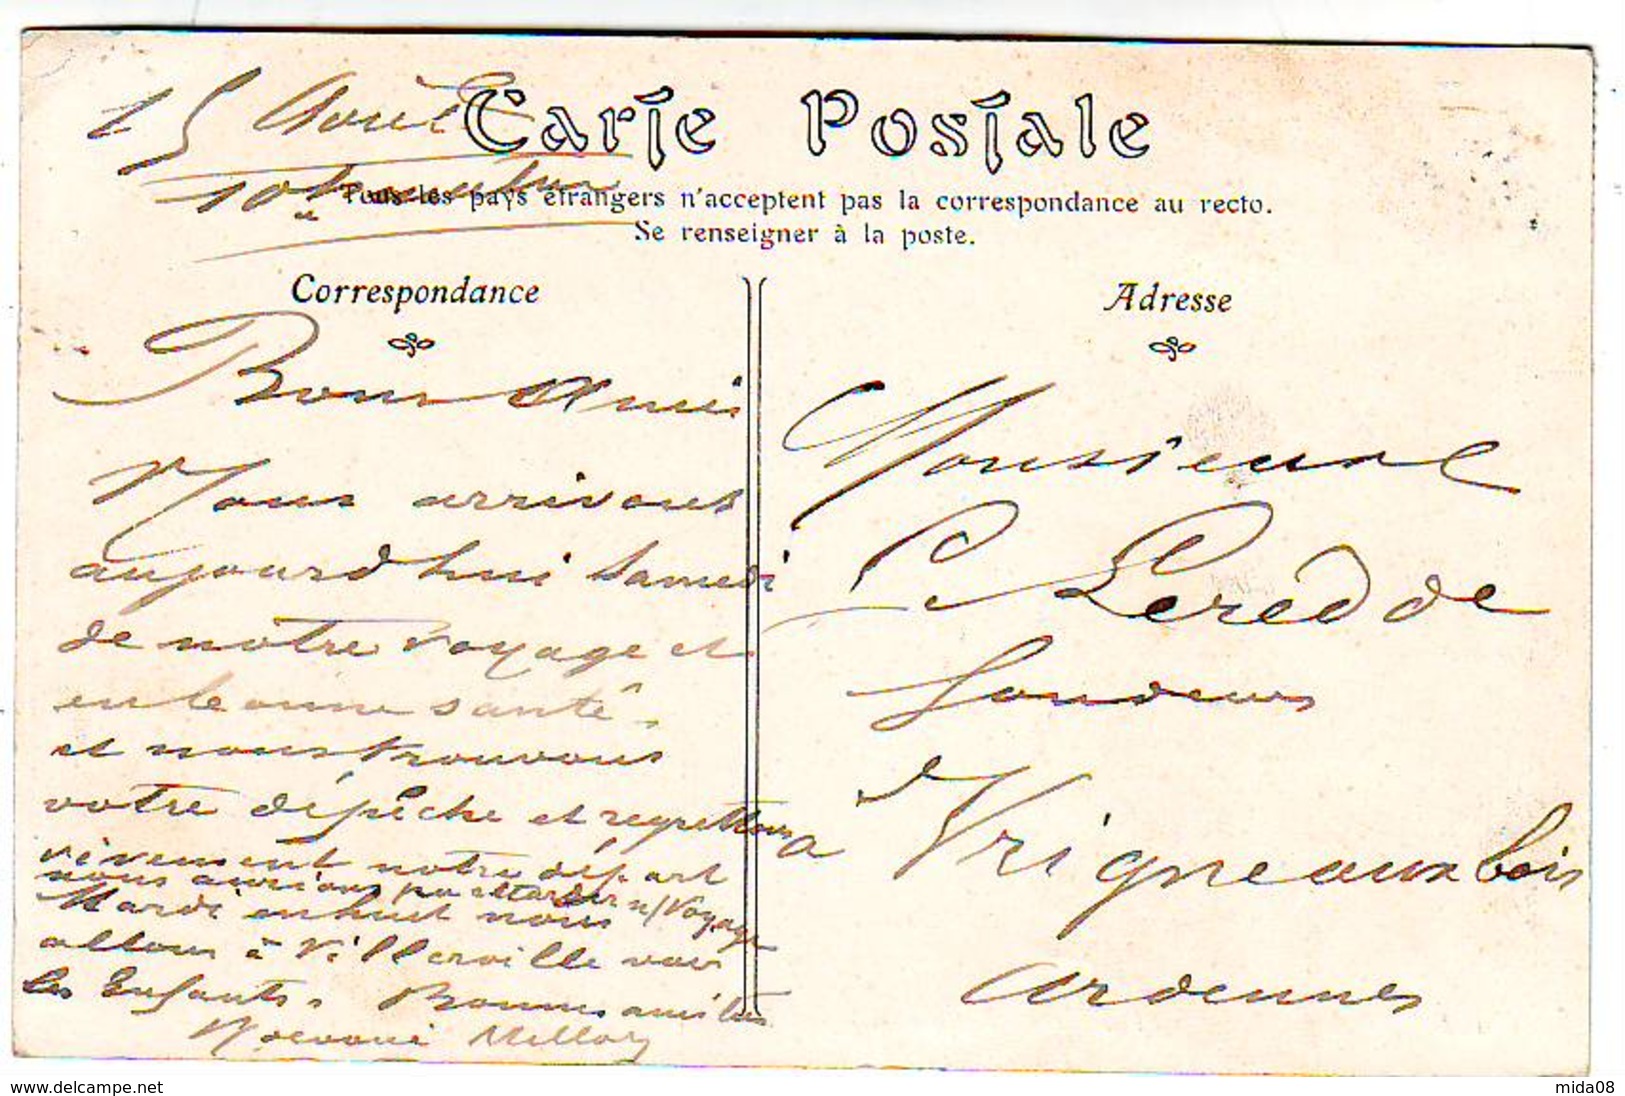 15 Août
10h
Carte Postale
Tous les pays étrangers n'acceptent pas la correspondance au recto.
Se renseigner à la poste.
Correspondance
Bons Amis
Nous arrivons
aujourd hui Samedi
de notre voyage et
en bonne santé.
et nous trouvons
votre dépêche et regrettons
vivement notre départ
nous aurions pu retarder n/ Voyage
Mardi en huit nous
allons à Villerville voir
les Enfants. Bonnes amitiés
Adresse
Monsieur
C Leredde
Sondeurs
a Vrigneaux bois
Ardennes
www.delcampe.net
mida08